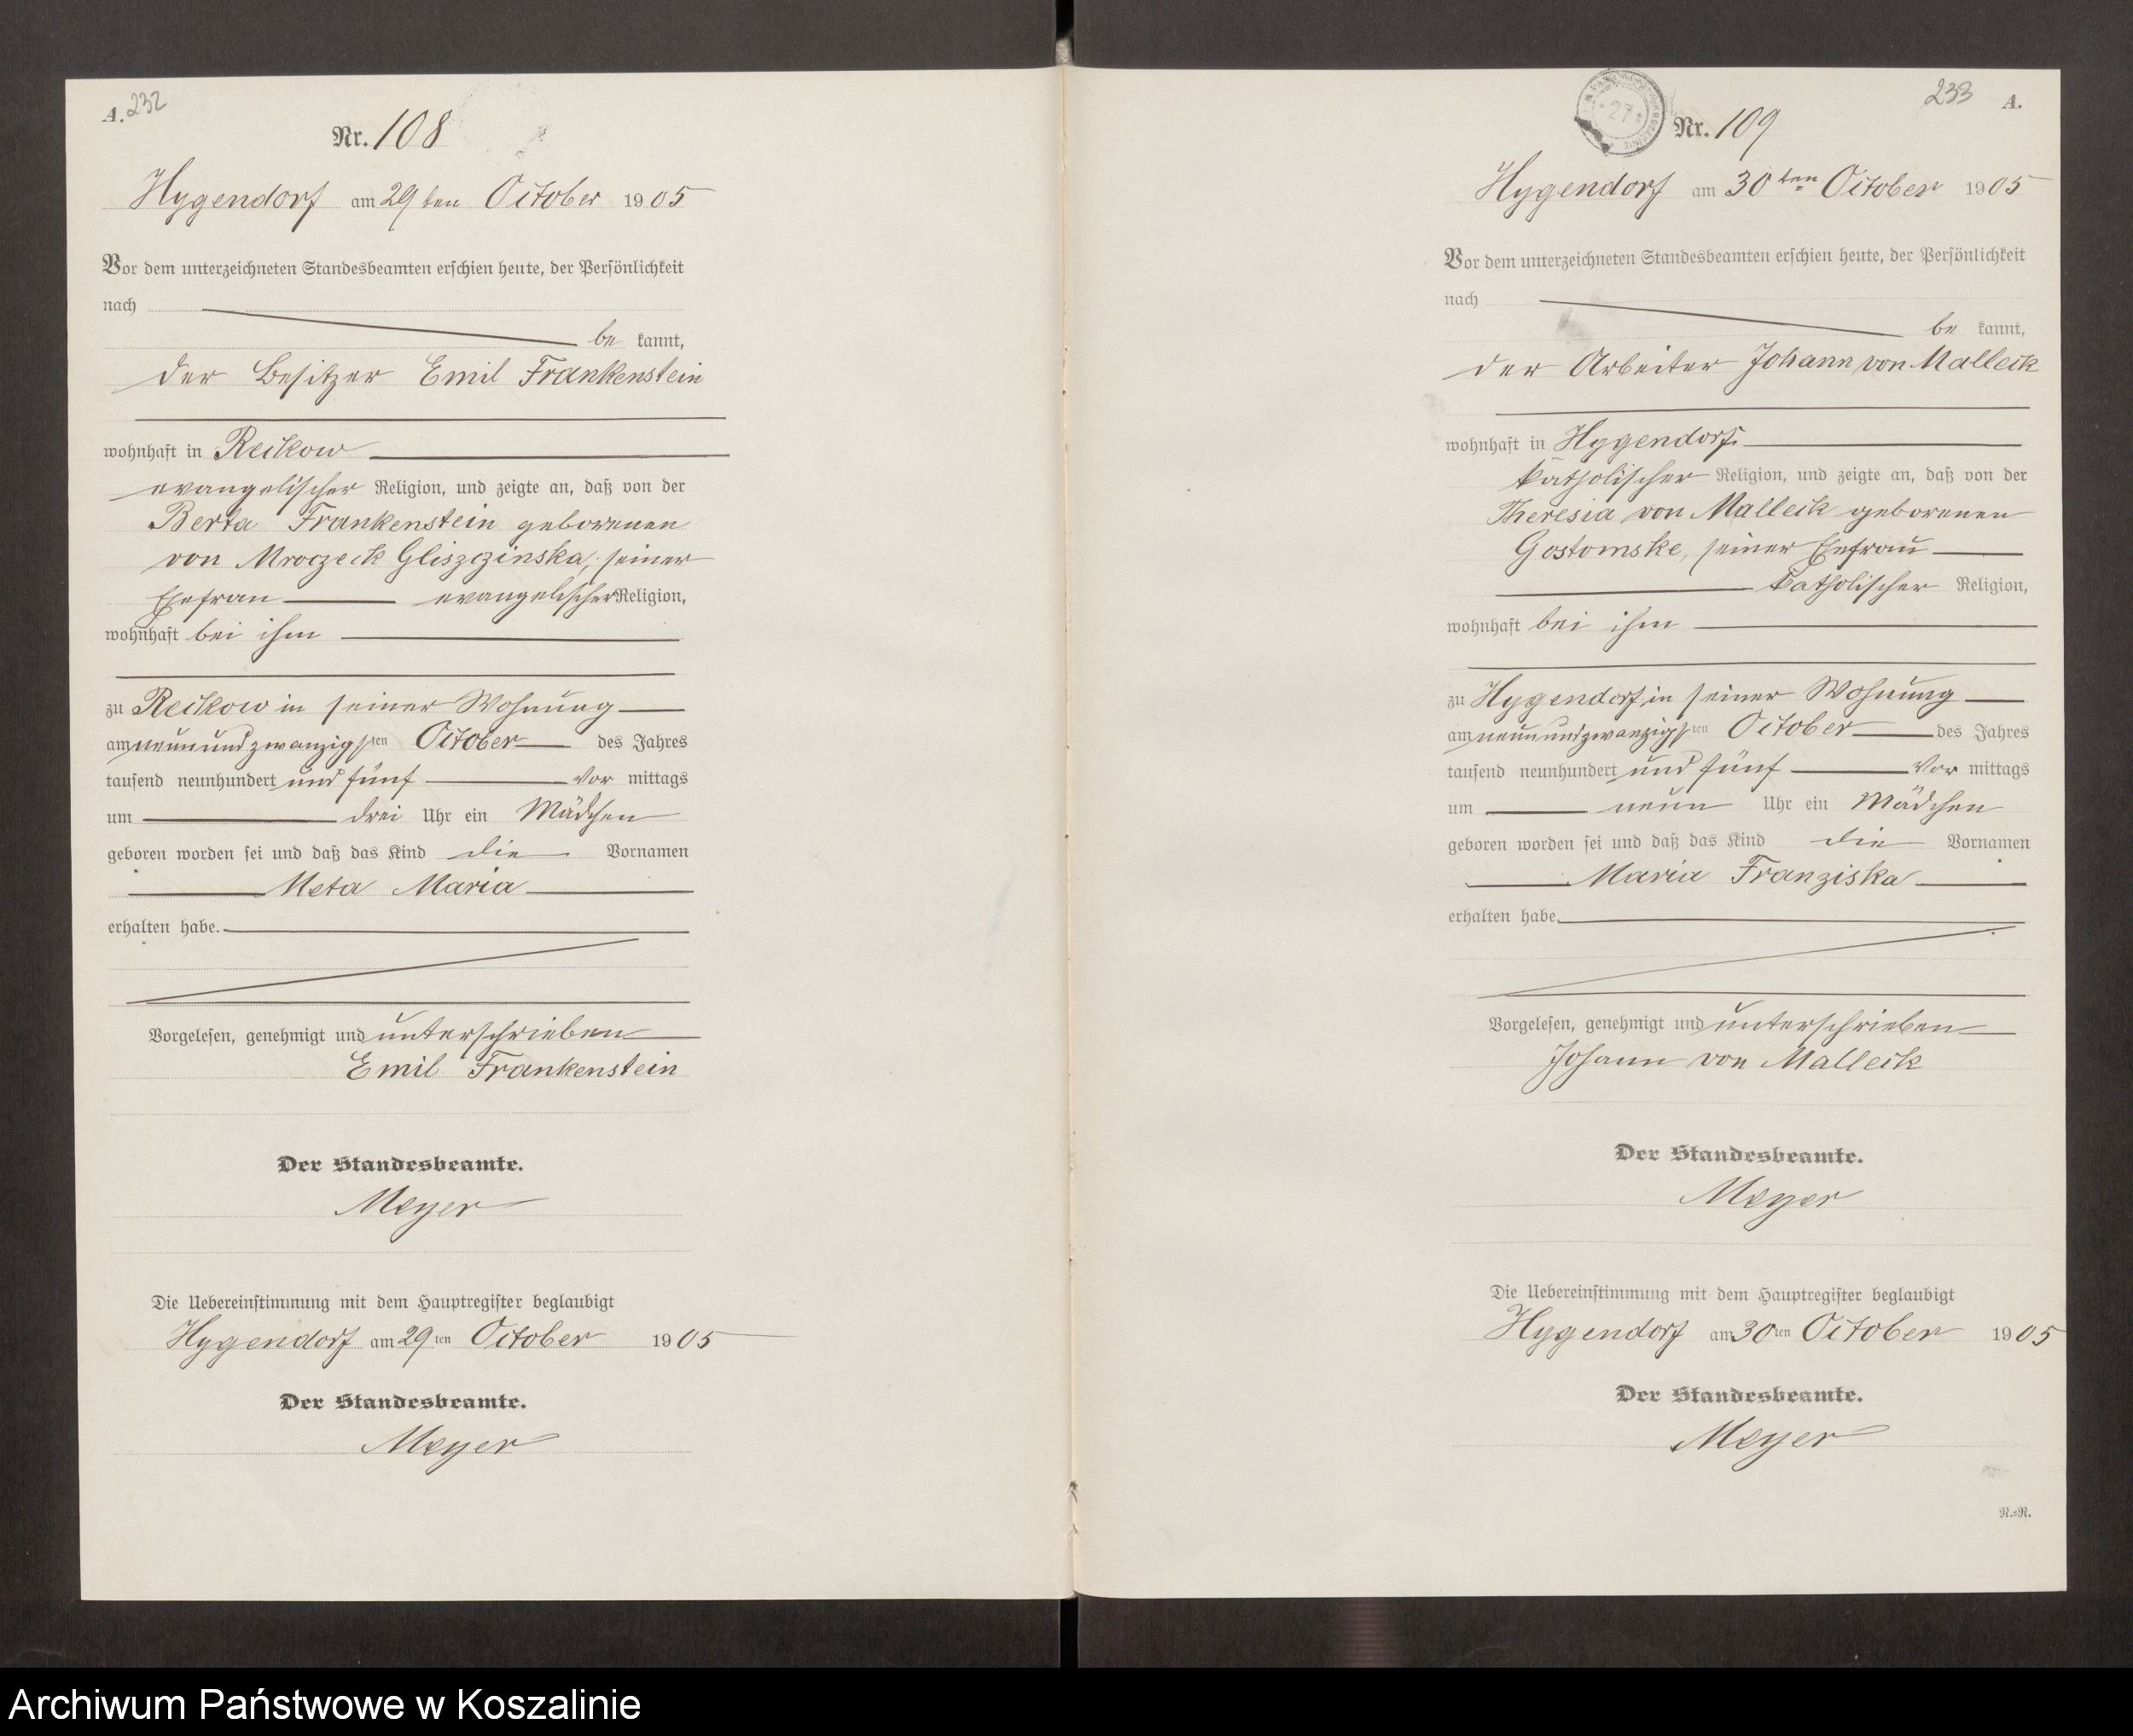 A. 232
Nr. 108
Hygendorf am 29ten October 1905
Vor dem unterzeichneten Standesbeamten erschien heute, der Persönlichkeit
nach
be kannt,
der Besitzer Emil Frankenstein
wohnhaft in Reckow
evangelischer Religion, und zeigte an, daß von der
Berta Frankenstein geborenen
von Mroczeck Gliszczinska, seiner
Ehefrau evangelischer Religion,
wohnhaft bei ihm
zu Reckow in seiner Wohnung
am neunundzwanzigsten October des Jahres
tausend neunhundert und fünf Vor mittags
um drei Uhr ein Mädchen
geboren worden sei und daß das Kind die Vornamen
Meta Maria
erhalten habe.
Vorgelesen, genehmigt und unterschrieben
Emil Frankenstein
Der Standesbeamte.
Meyer
Die Uebereinstimmung mit dem Hauptregister beglaubigt
Hygendorf am 29ten October 1905
Der Standesbeamte.
Meyer
233 A.
27
Nr. 109
Hygendorf am 30ten October 1905
Vor dem unterzeichneten Standesbeamten erschien heute, der Persönlichkeit
nach
be kannt,
der Arbeiter Johann von Malleck
wohnhaft in Hygendorf.
katholischer Religion, und zeigte an, daß von der
Theresia von Malleck geborenen
Gostomske, seiner Ehefrau
katholischer Religion,
wohnhaft bei ihm
zu Hygendorf in seiner Wohnung
am neunundzwanzigsten October des Jahres
tausend neunhundert und fünf Vor mittags
um neun Uhr ein Mädchen
geboren worden sei und daß das Kind die Vornamen
Maria Franziska
erhalten habe.
Vorgelesen, genehmigt und unterschrieben
Johann von Malleck
Der Standesbeamte.
Meyer
Die Uebereinstimmung mit dem Hauptregister beglaubigt
Hygendorf am 30ten October 1905
Der Standesbeamte.
Meyer
N.=N.
Archiwum Państwowe w Koszalinie